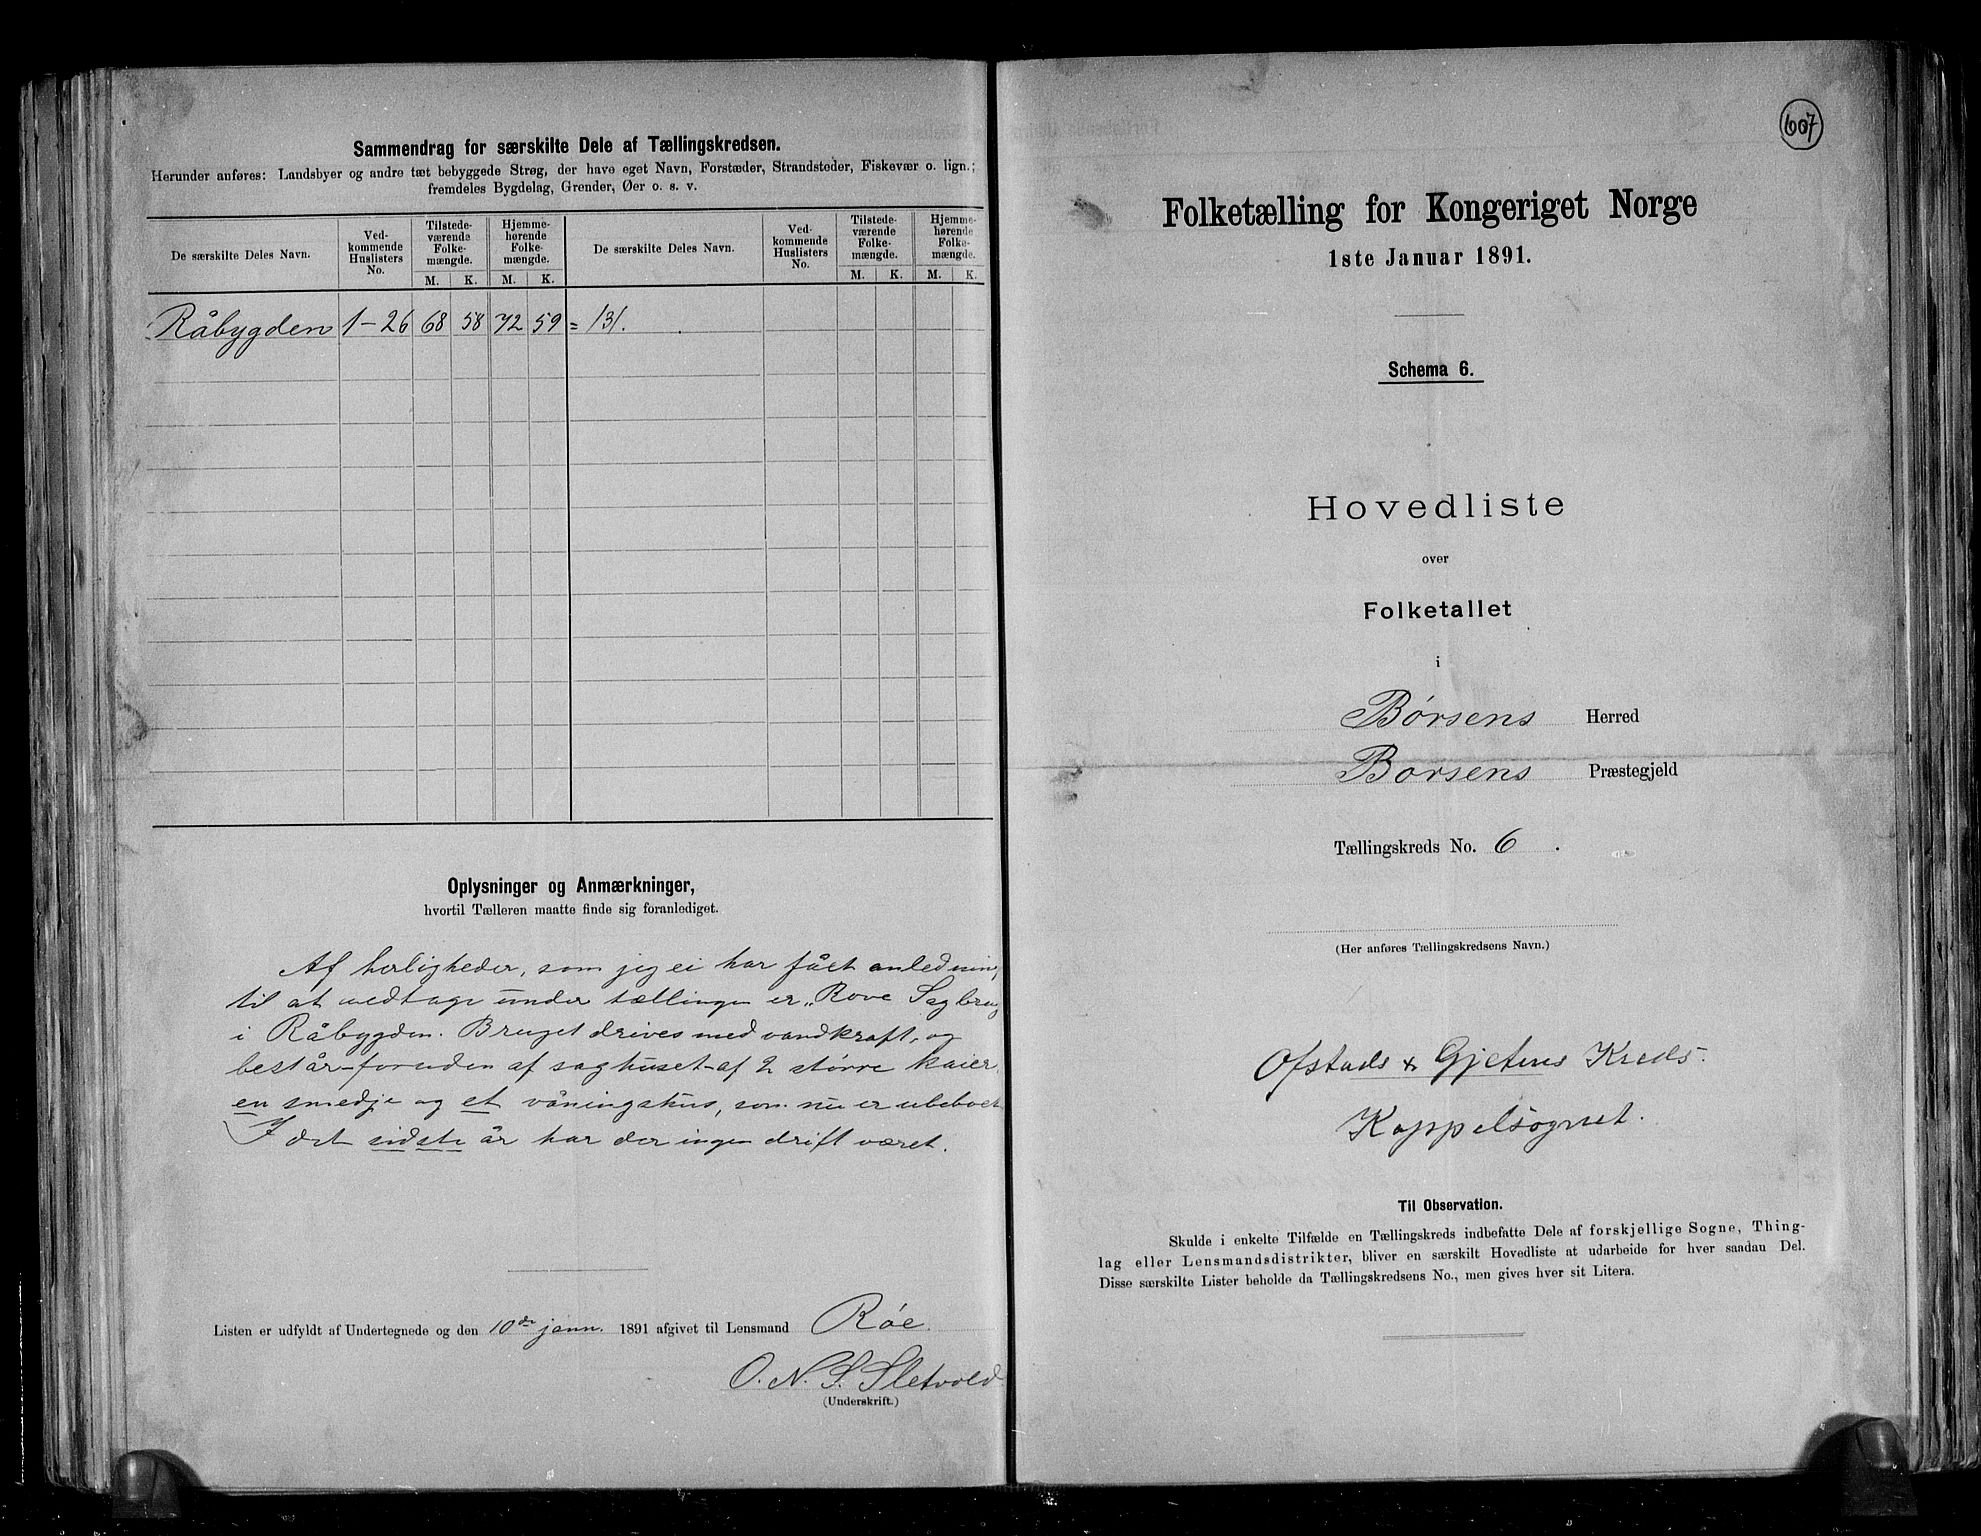 Sammendrag for særskilte Dele af Tællingskredsen.
Herunder anføres: Landsbyer og andre tæt bebyggede Strøg, der have eget Navn, Forstæder, Strandsteder, Fiskevær o. lign.;
fremdeles Bygdelag, Grender, Øer o. s. v.
De særskilte Deles Navn. Ved-kommende Huslisters No. Tilstede-værende Folke-mængde. Hjemme-hørende Folke-mængde. De særskilte Deles Navn. Ved-kommende Huslisters No. Tilstede-værende Folke-mængde. Hjemme-hørende Folke-mængde.
M. K. M. K. M. K. M. K.
Råbygden 1-26 68 58 72 59 = 131.
Oplysninger og Anmærkninger,
hvortil Tælleren maatte finde sig foranlediget.
Af herligheder, som jeg ei har fået anledning
til at medtage under tællingen er „Rove Sagbrug
i Råbygden. Bruget drives med vandkraft, og
består foruden af saghuset af 2 større kaier,
en smedje og et våningshus, som nu er ubeboet
I det sidste år har der ingen drift været.
Listen er udfyldt af Undertegnede og den 10de jann. 1891 afgivet til Lensmand Røe.
O. N. S. Sletvold
(Underskrift.)
607
Folketælling for Kongeriget Norge
1ste Januar 1891.
Schema 6.
Hovedliste
over
Folketallet
i
Børsens Herred
Børsens Præstegjeld
Tællingskreds No. 6.
(Her anføres Tællingskredsens Navn.)
Ofstads & Gjetens Kreds.
Kappelsognet.
Til Observation.
Skulde i enkelte Tilfælde en Tællingskreds indbefatte Dele af forskjellige Sogne, Thing-
lag eller Lensmandsdistrikter, bliver en særskilt Hovedliste at udarbeide for hver saadan Del.
Disse særskilte Lister beholde da Tællingskredsens No., men gives hver sit Litera.